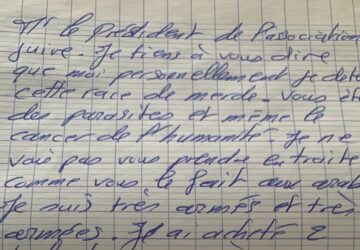 Mr le Président de l'association
juive. Je tiens à vous dire
que moi personnellement je det
cette race de merde. Vous êt
des parasites et même le
cancer de l'humanité. Je ne
vais pas vous prendre en traite
comme vous le fait aux arab
Je suis très armés et très
armées. J'ai acheté 2